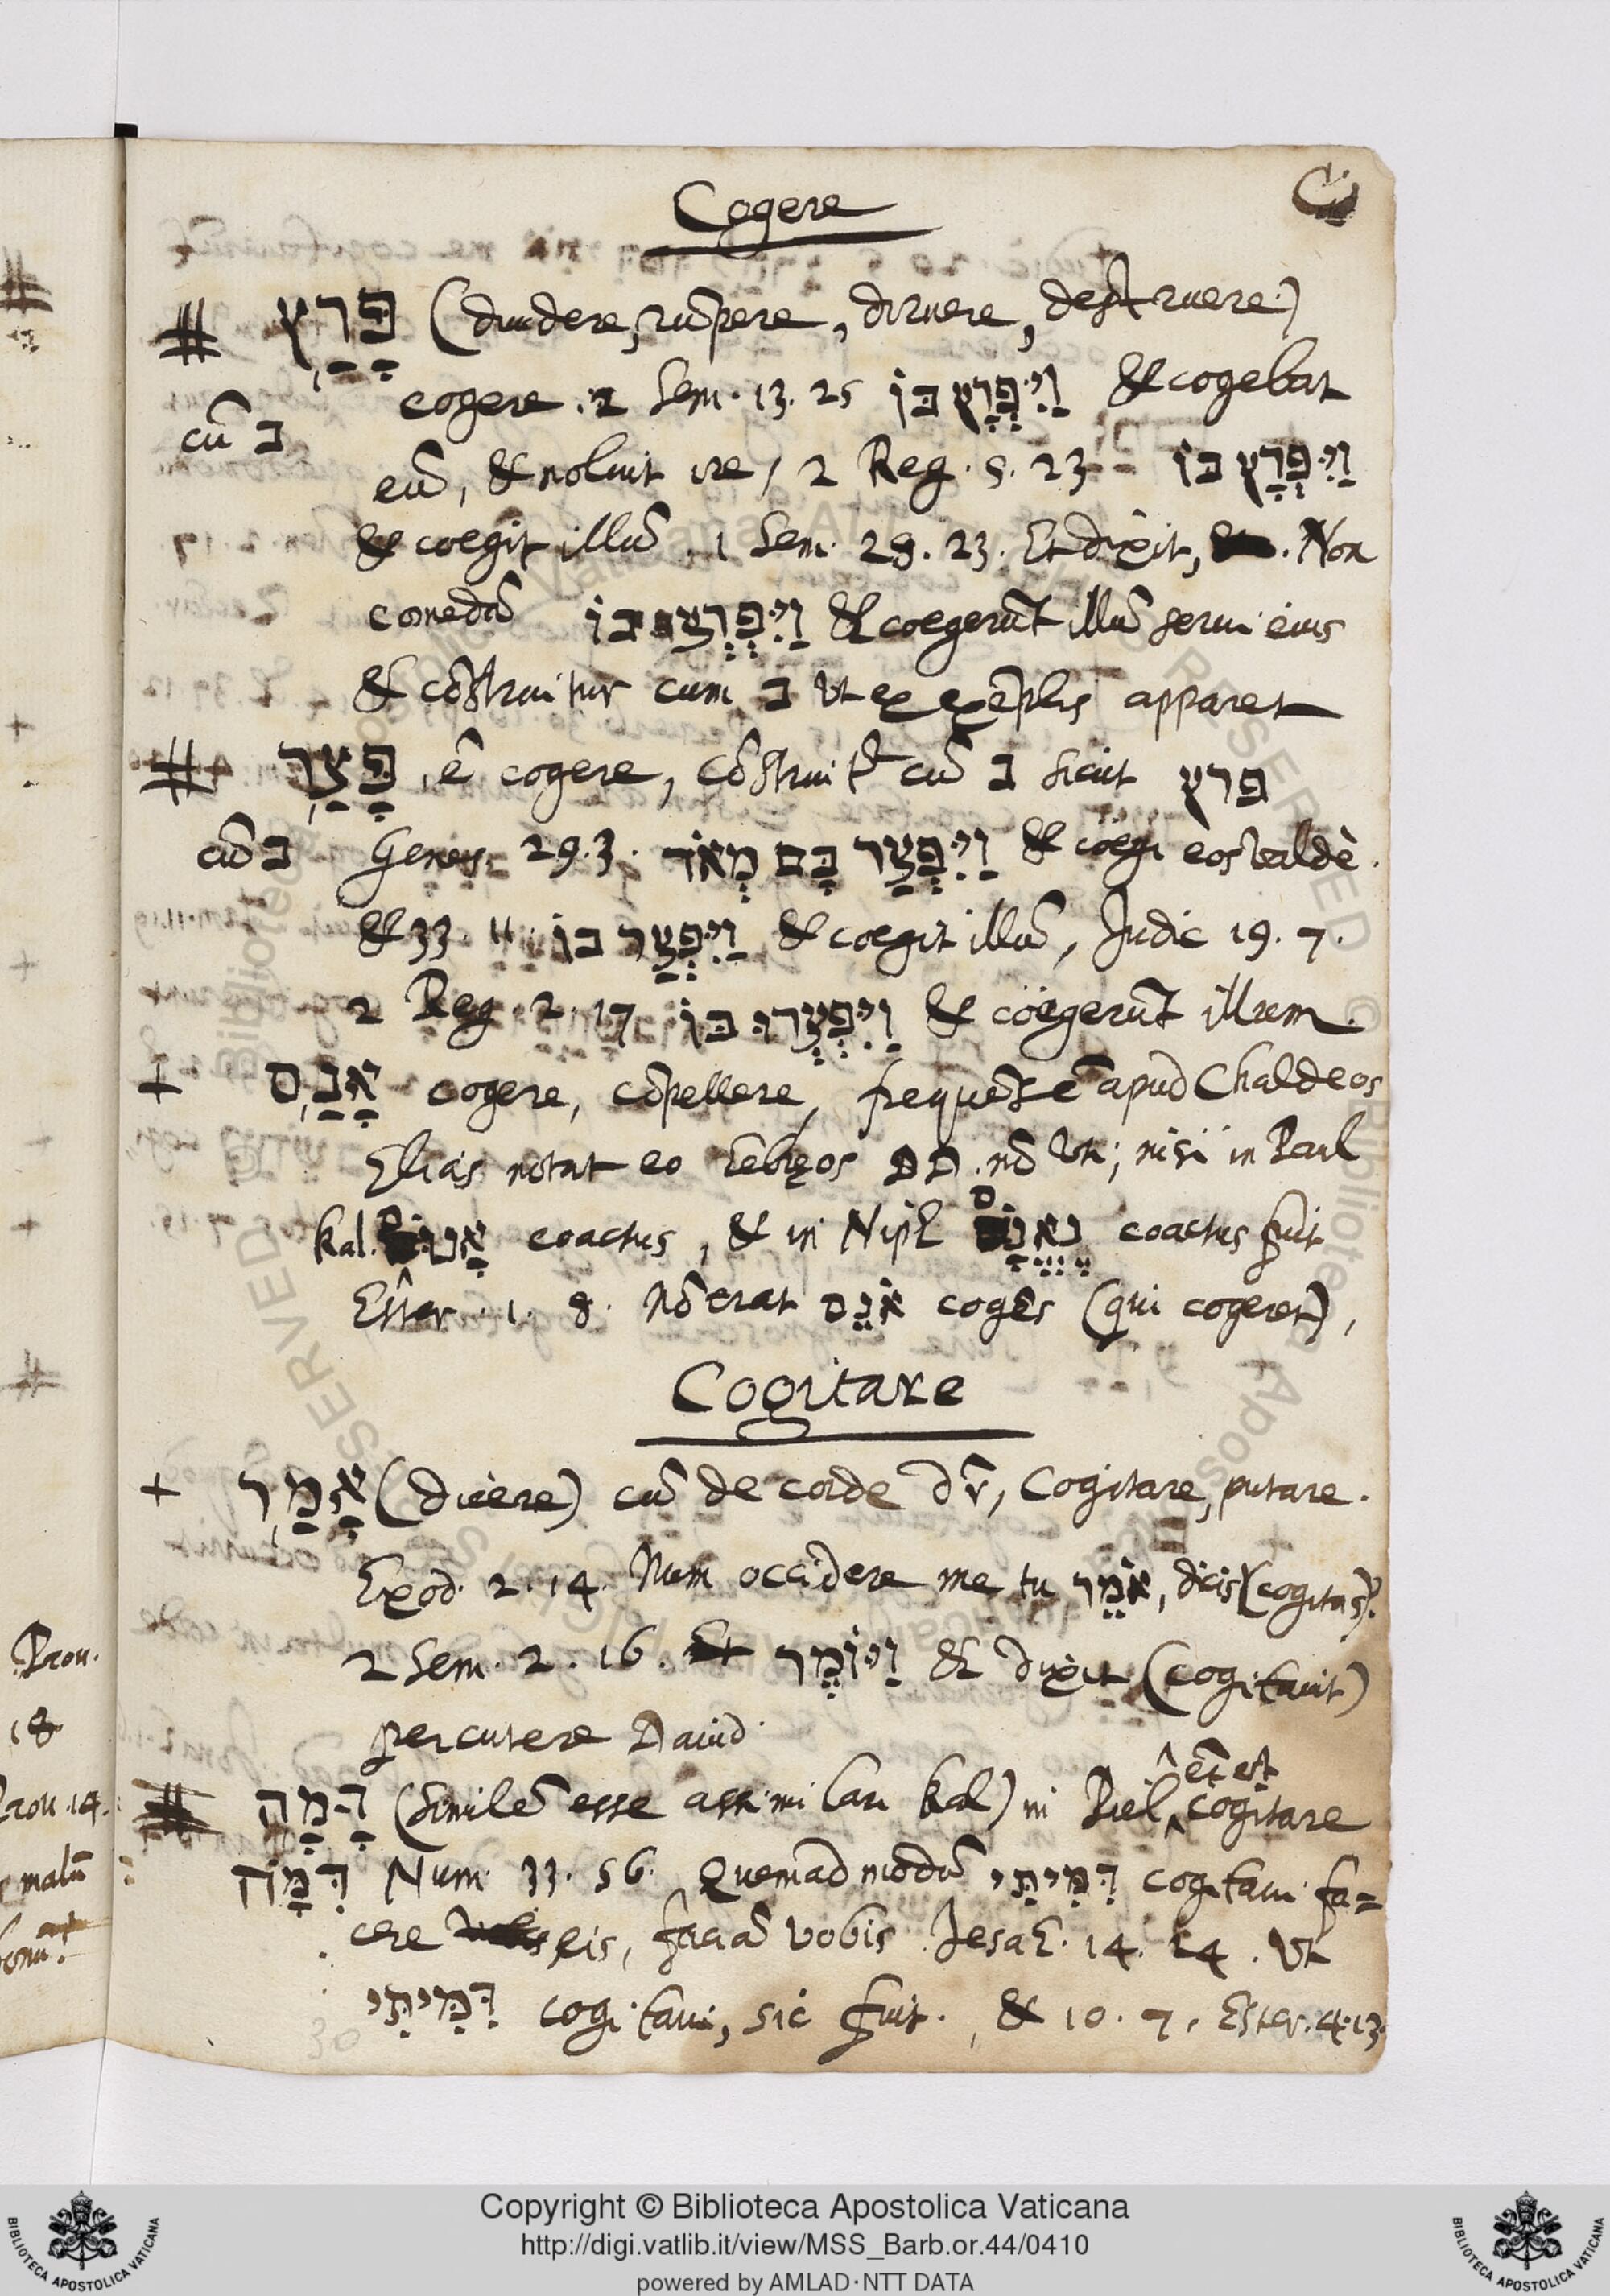 Cogere
פָּרַץ (diuidere, rũpere, diruere, destruere)
cogere. 2 Sem. 13. 25 וַיִּפְרָץ בּוֹ & cogebat
cũ ב
eũ, & noluit ire, 2 Reg. 5. 23 וַיִּפְרָץ בּוֹ
& coegit illũ. 1 Sem. 28. 23. Et dixit, . Non
comedã וַיִּפְרְצוּ בוֹ & coegerũt illũ serui eius
& cõstruitur cum ב ut ex exẽplis apparet
פָּצַר, ẽ cogere, cõstruitr cũ ב sicut פרץ
cũ ב Genes. 29.3. וַיִּפְצַר בָּם מְאֹד & coegi eos valdè.
& 33 11 וַיִּפְצַר בּוֹ & coegit illũ, Judic 19. 7.
2 Reg. 2. 17 וַיִּפְצְרוּ בּוֹ & coëgerũt illum.
אָנַס cogere, cõpellere, frequẽs ẽ apud Chaldeos
Elias notat eo nõ ut; nisi in Paul
kal. אָנוּס coactus, & in Niph נֶאֱנָס coactus fuit
Ester. 1. 8. Nõ erat אֹנֵס cogẽs (qui cogeret),
Cogitare
אָמַר (dicere) cũ de corde dr, Cogitare, putare.
Exod. 2. 14. Num occidere me tu אֹמֵר, dicis (cogitas)?
2 Sem. 2. 16. וַיּוֹמֶר & dixit (cogitauit)
percutere Dauid.
et est
דָּמָה (Similẽ esse assimilari kal) in Piel cogitare
דִּמָּה Num. 33. 56. Quemadmodũ דִּמִּיתִי cogitaui fa=
cere eis, faciã vobis. Jesa. 14. 24. Ut
דִּמִּיתִי cogitaui, sic fuit. & 10. 7, Ester. 4. 13.
30
Prou.
18
Prou. 14.
malũ
Copyright © Biblioteca Apostolica Vaticana
http://digi.vatlib.it/view/MSS_Barb.or.44/0410
powered by AMLAD·NTT DATA
BIBLIOTECA APOSTOLICA VATICANA
BIBLIOTECA APOSTOLICA VATICANA